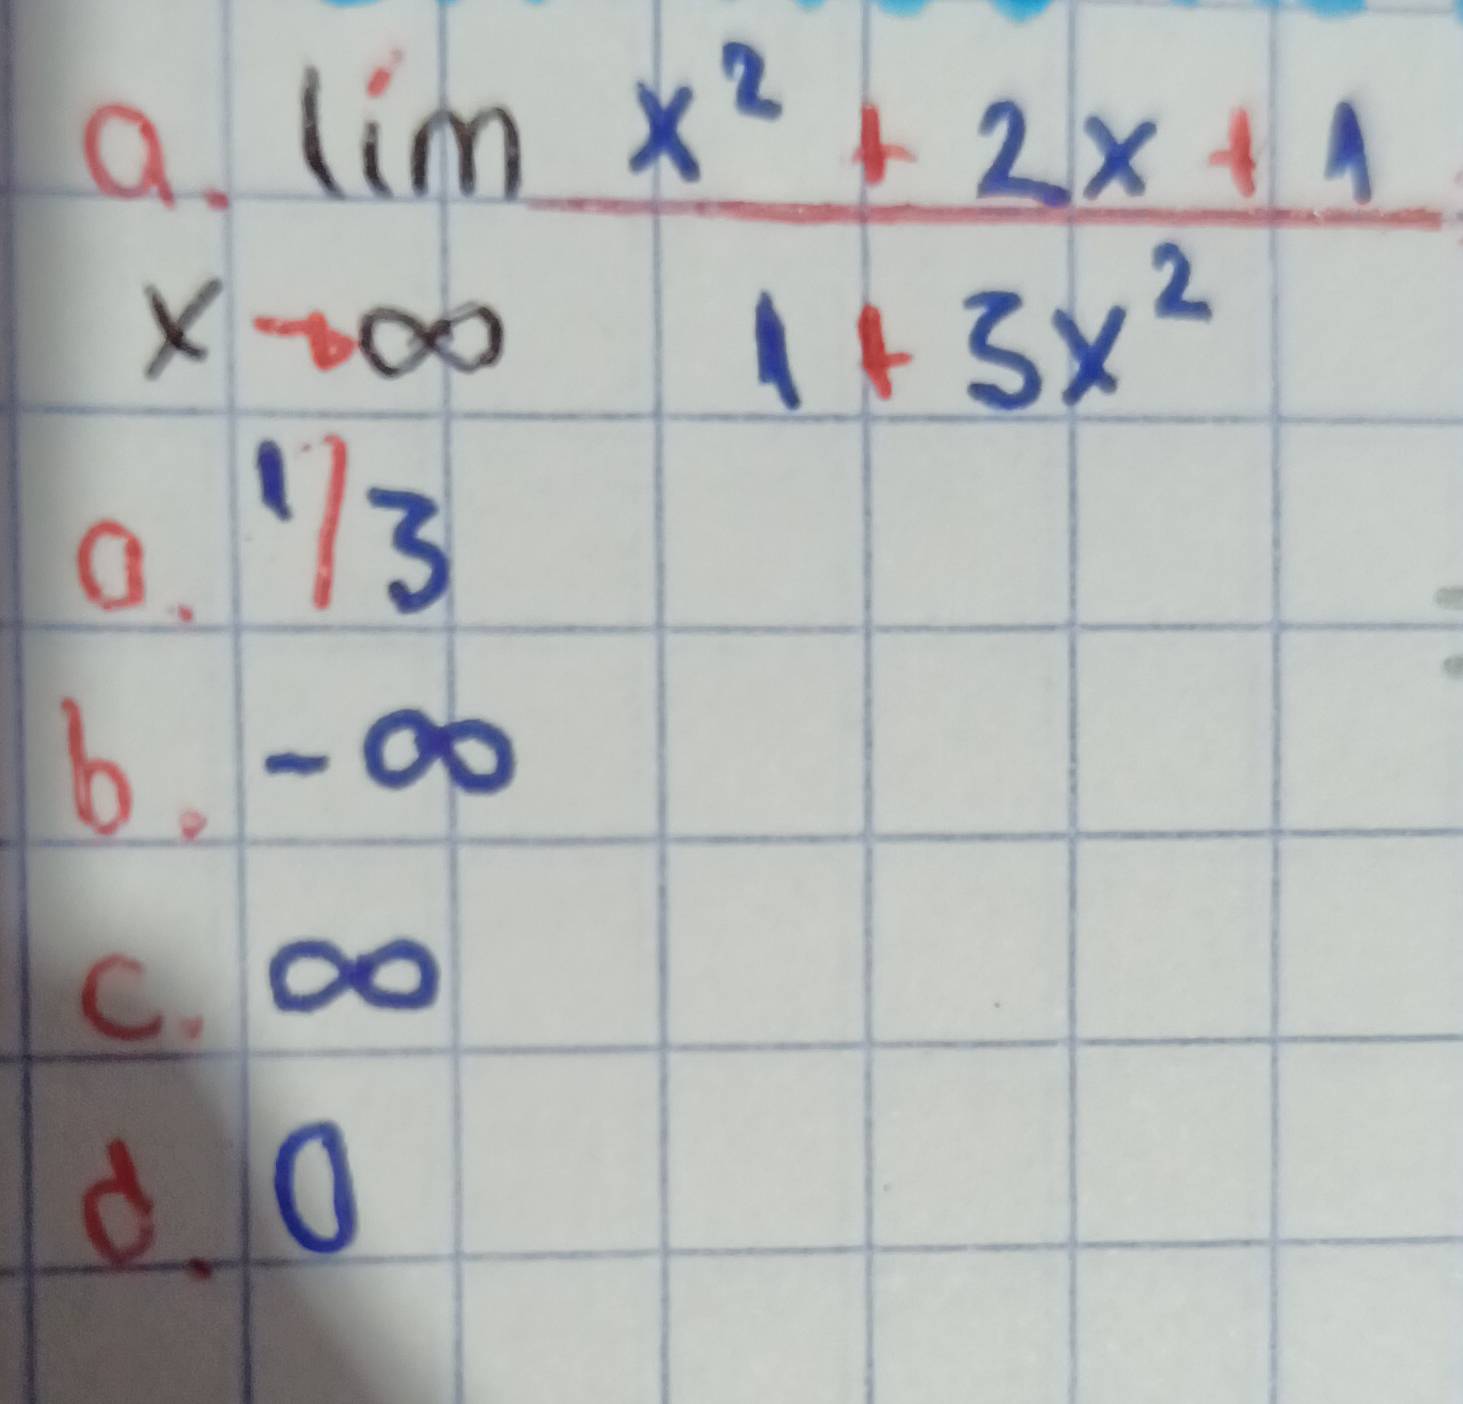 a. lim x² + 2x + 1
x→∞ 1 + 3x²
a. 1/3
b. -∞
c. ∞
d. 0